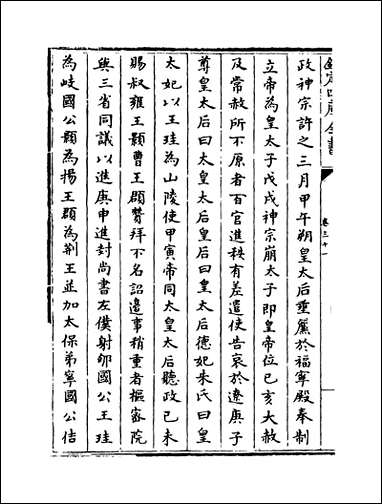 欽定四庫全書
卷三十一
政神宗許之三月甲午朔皇太后垂簾於福寧殿奉制
立帝為皇太子戊戌神宗崩太子即皇帝位己亥大赦
及常赦所不原者百官進秩有差遣使告哀於遼庚子
尊皇太后曰太皇太后皇后曰皇太后德妃朱氏曰皇
太妃以王珪為山陵使甲寅帝同太皇太后聽政已未
賜叔雍王顥曹王頵贊拜不名詔邊事稍重者樞密院
與三省同議以進庚申進封尚書左僕射郇國公王珪
為岐國公顥為揚王頵為荆王並加太保弟寧國公佶